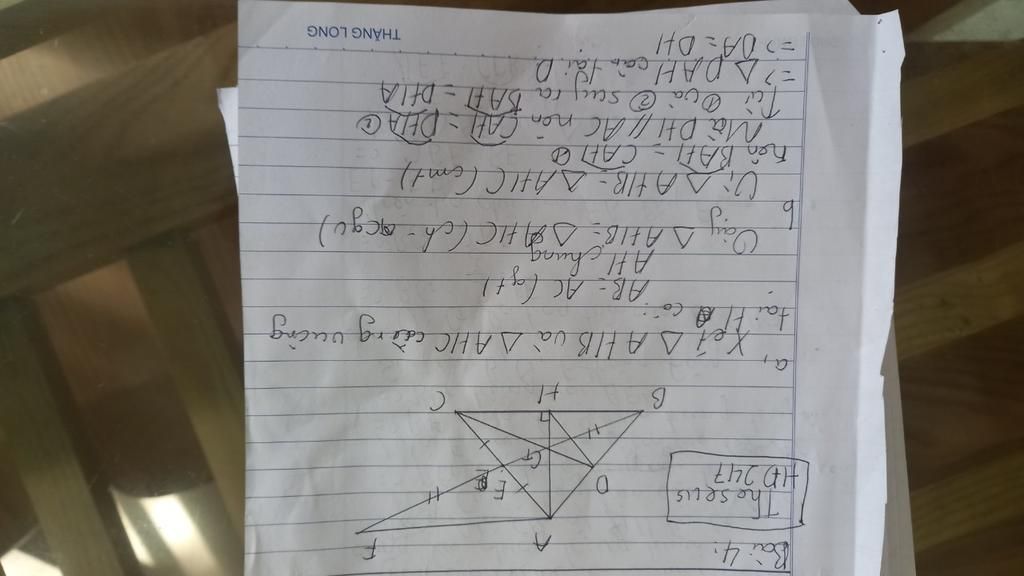 Bài 4:
Theseus
HD247
F
A
D
E
G
B
H
C
a, Xét △ AHB và △ AHC cùng vuông
tại H có:
AB = AC (gt)
AH chung
Vậy △ AHB = △ AHC (ch - cgv)
b
Vì △ AHB = △ AHC (cmt)
nên BAH = CAH ①
Mà DH // AC nên CAH = DHA ②
Từ ① và ② suy ra BAH = DHA
=> △ DAH cân tại D
=> DA = DH
THĂNG LONG